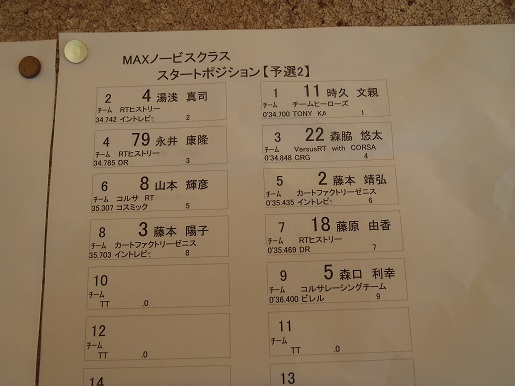 MAXノービスクラス
スタートポジション【予選2】
1 11 時久 文親
チーム チームヒーローズ
0'34.700 TONY KA 1
2 4 湯浅 真司
チーム RTヒストリー
34.742 イントレピッ 2
3 22 森脇 悠太
チーム VersusRT with CORSA
0'34.848 CRG 4
4 79 永井 康隆
チーム RTヒストリー
34.785 DR 3
5 2 藤本 靖弘
チーム カートファクトリーゼニス
0'35.435 イントレピッ 6
6 8 山本 輝彦
チーム コルサ RT
35.307 コスミック 5
7 18 藤原 由香
チーム RTヒストリー
0'35.469 DR 7
8 3 藤本 陽子
チーム カートファクトリーゼニス
35.703 イントレピッ 8
9 5 森口 利幸
チーム コルサレーシングチーム
0'36.400 ビレル 9
10
チーム
TT .0
11
チーム
TT .0
12
チーム
TT .0
13
14